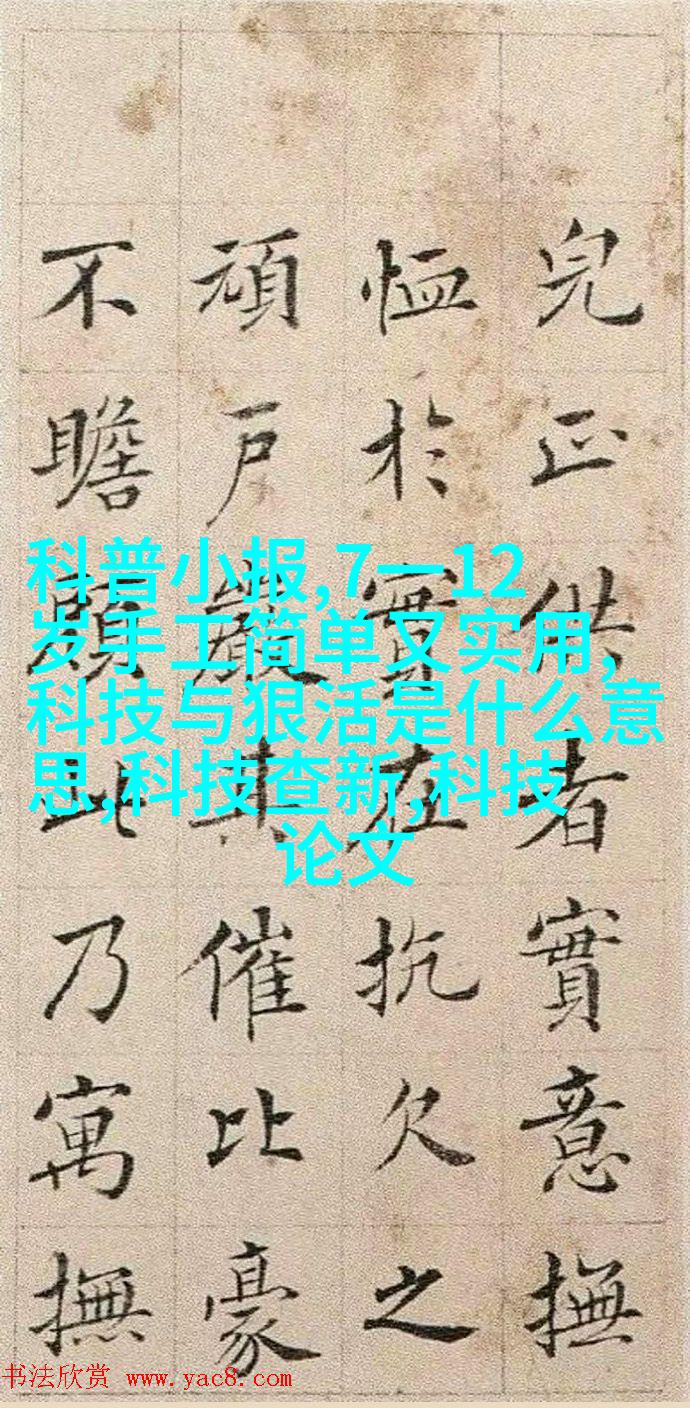 完正供者實意撫
恤於實在抗欠之
頑戶嚴其催比豪
不瞻顧此乃寓撫
科普小报,7一12
岁手工简单又实用,
科技与狠活是什么意
思,科技查新,科技
论文
书法欣赏 www.yac8.com